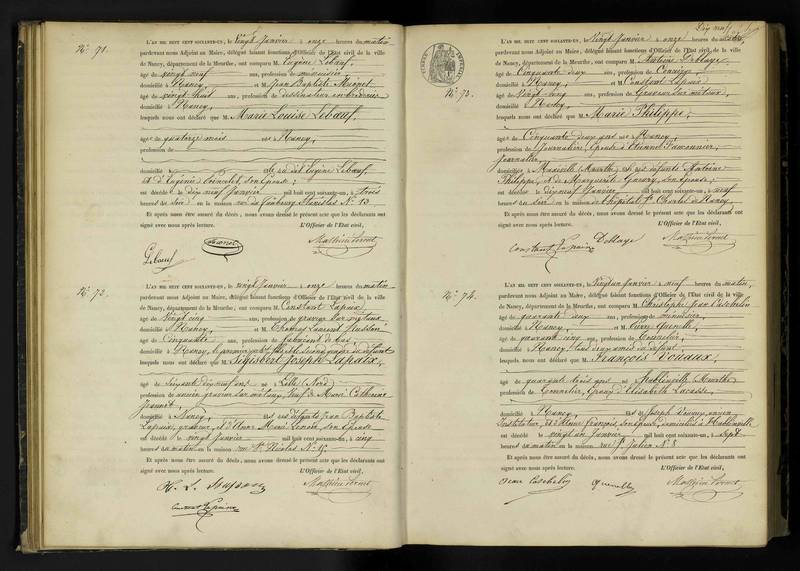 N.º 71.
L'AN MIL HUIT CENT SOIXANTE-UN, le Vingt Janvier à onze heures du matin
pardevant nous Adjoint au Maire, délégué faisant fonctions d'Officier de l'Etat civil de la ville
de Nancy, département de la Meurthe, ont comparu M. Eugène Lebœuf,
âgé de vingt neuf ans, profession de menuisier,
domicilié à Nancy, et M. Jean Baptiste
âgé de vingt huit ans, profession de dessinateur en broderies
domicilié à Nancy,
lesquels nous ont déclaré que M. Marie Louise Lebœuf,
âgée de quatorze mois née à Nancy,
profession de
domiciliée fille du dit Eugène Lebœuf,
et d'Eugénie son épouse,
est décédée le dix neuf Janvier mil huit cent soixante-un, à trois
heures du soir en la maison rue du Faubourg Stanislas N.º 13
Et après nous être assuré du décès, nous avons dressé le présent acte que les déclarants ont
signé avec nous après lecture. L'Officier de l'Etat civil,
Lebœuf
N.º 72.
L'AN MIL HUIT CENT SOIXANTE-UN, le vingt Janvier à onze heures du matin
pardevant nous Adjoint au Maire, délégué faisant fonctions d'Officier de l'Etat civil de la ville
de Nancy, département de la Meurthe, ont comparu M. Constant Lapaix
âgé de Vingt cinq ans, profession de graveur sur métaux
domicilié à Nancy, et M. Thomas Laurent
âgé de Cinquante ans, profession de fabricant de bas
domicilié à Nancy, le premier petit fils le second gendre du défunt
lesquels nous ont déclaré que M. Sigisbert Joseph Lapaix,
âgé de Soixante dix neuf ans né à Lille (Nord)
profession de ancien graveur sur métaux, Veuf de Marie Catherine
domicilié à Nancy, fils des défunts Jean Baptiste
Lapaix, graveur, et d' Marie son épouse
est décédé le vingt Janvier mil huit cent soixante-un, à cinq
heures du matin en la maison rue St Nicolas N.º
Et après nous être assuré du décès, nous avons dressé le présent acte que les déclarants ont
signé avec nous après lecture. L'Officier de l'Etat civil,
Constant Lapaix
N.º 73.
L'AN MIL HUIT CENT SOIXANTE-UN, le Vingt Janvier à onze heures du matin,
pardevant nous Adjoint au Maire, délégué faisant fonctions d'Officier de l'Etat civil de la ville
de Nancy, département de la Meurthe, ont comparu M. Antoine Deblaye
âgé de Cinquante deux ans, profession de
domicilié à Nancy, et M. Constant Lapaix
âgé de Vingt cinq ans, profession de Graveur sur métaux,
domicilié à Nancy,
lesquels nous ont déclaré que M. Marie Philippe,
âgée de Cinquante deux ans née à Nancy,
profession de Journalière, Epouse d'Etienne
Journalier,
domiciliée à Maxéville (Meurthe) fille des défunts Antoine
Philippe, et de Marguerite son épouse,
est décédée le dix neuf Janvier mil huit cent soixante-un, à neuf
heures du soir en la maison de l'hôpital St Charles de Nancy,
Et après nous être assuré du décès, nous avons dressé le présent acte que les déclarants ont
signé avec nous après lecture. L'Officier de l'Etat civil,
Constant Lapaix Deblaye
N.º 74.
L'AN MIL HUIT CENT SOIXANTE-UN, le Vingt un Janvier à neuf heures du matin,
pardevant nous Adjoint au Maire, délégué faisant fonctions d'Officier de l'Etat civil de la ville
de Nancy, département de la Meurthe, ont comparu M. Christophe Jean
âgé de quarante deux ans, profession de menuisier
domicilié à Nancy, et M. Pierre Quenelle
âgé de quarante cinq ans, profession de Tonnelier,
domicilié à Nancy, tous deux amis du défunt
lesquels nous ont déclaré que M. François Vouaux,
âgé de quarante trois ans né à (Meurthe)
profession de Tonnelier, Epoux d'Elisabeth Lacasse,
domicilié à Nancy, fils de Joseph Vouaux, ancien
Instituteur, et d' François, son épouse, domiciliés à
est décédé le vingt un Janvier mil huit cent soixante-un, à sept
heures du matin en la maison rue St Julien N.º 8
Et après nous être assuré du décès, nous avons dressé le présent acte que les déclarants ont
signé avec nous après lecture. L'Officier de l'Etat civil,